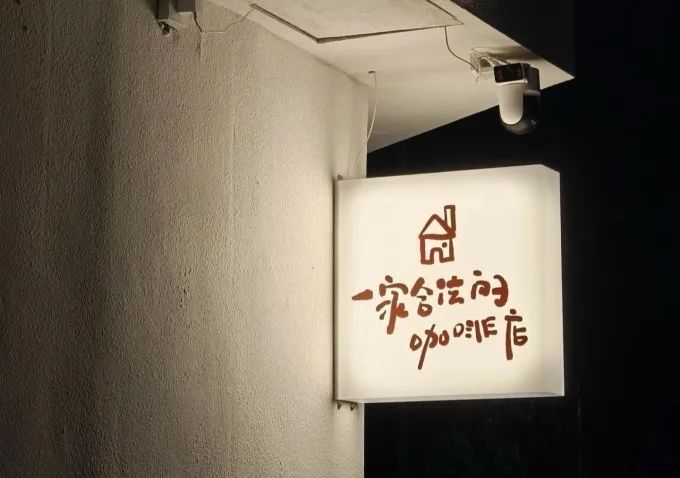 一家合法的
咖啡店